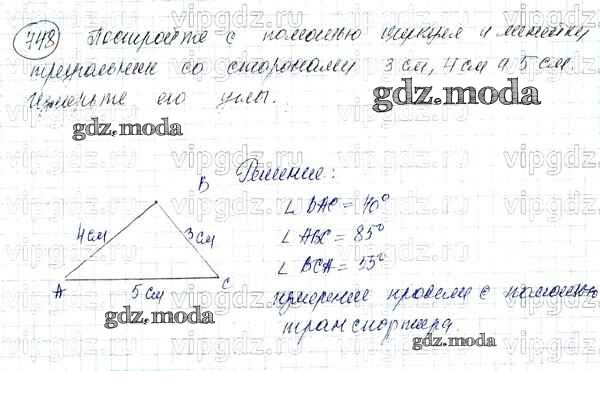 748 Постройте с помощью циркуля и линейки
треугольник со сторонами 3 см, 4 см и 5 см.
Измерьте его углы.
gdz.moda
gdz.moda
Решение:
B
4 см
3 см
A
5 см
C
∠ BAC = 40°
∠ ABC = 85°
∠ BCA = 55°
измерение провели с помощью
транспортира.
gdz.moda
gdz.moda
gdz.moda
vipgdz.ru